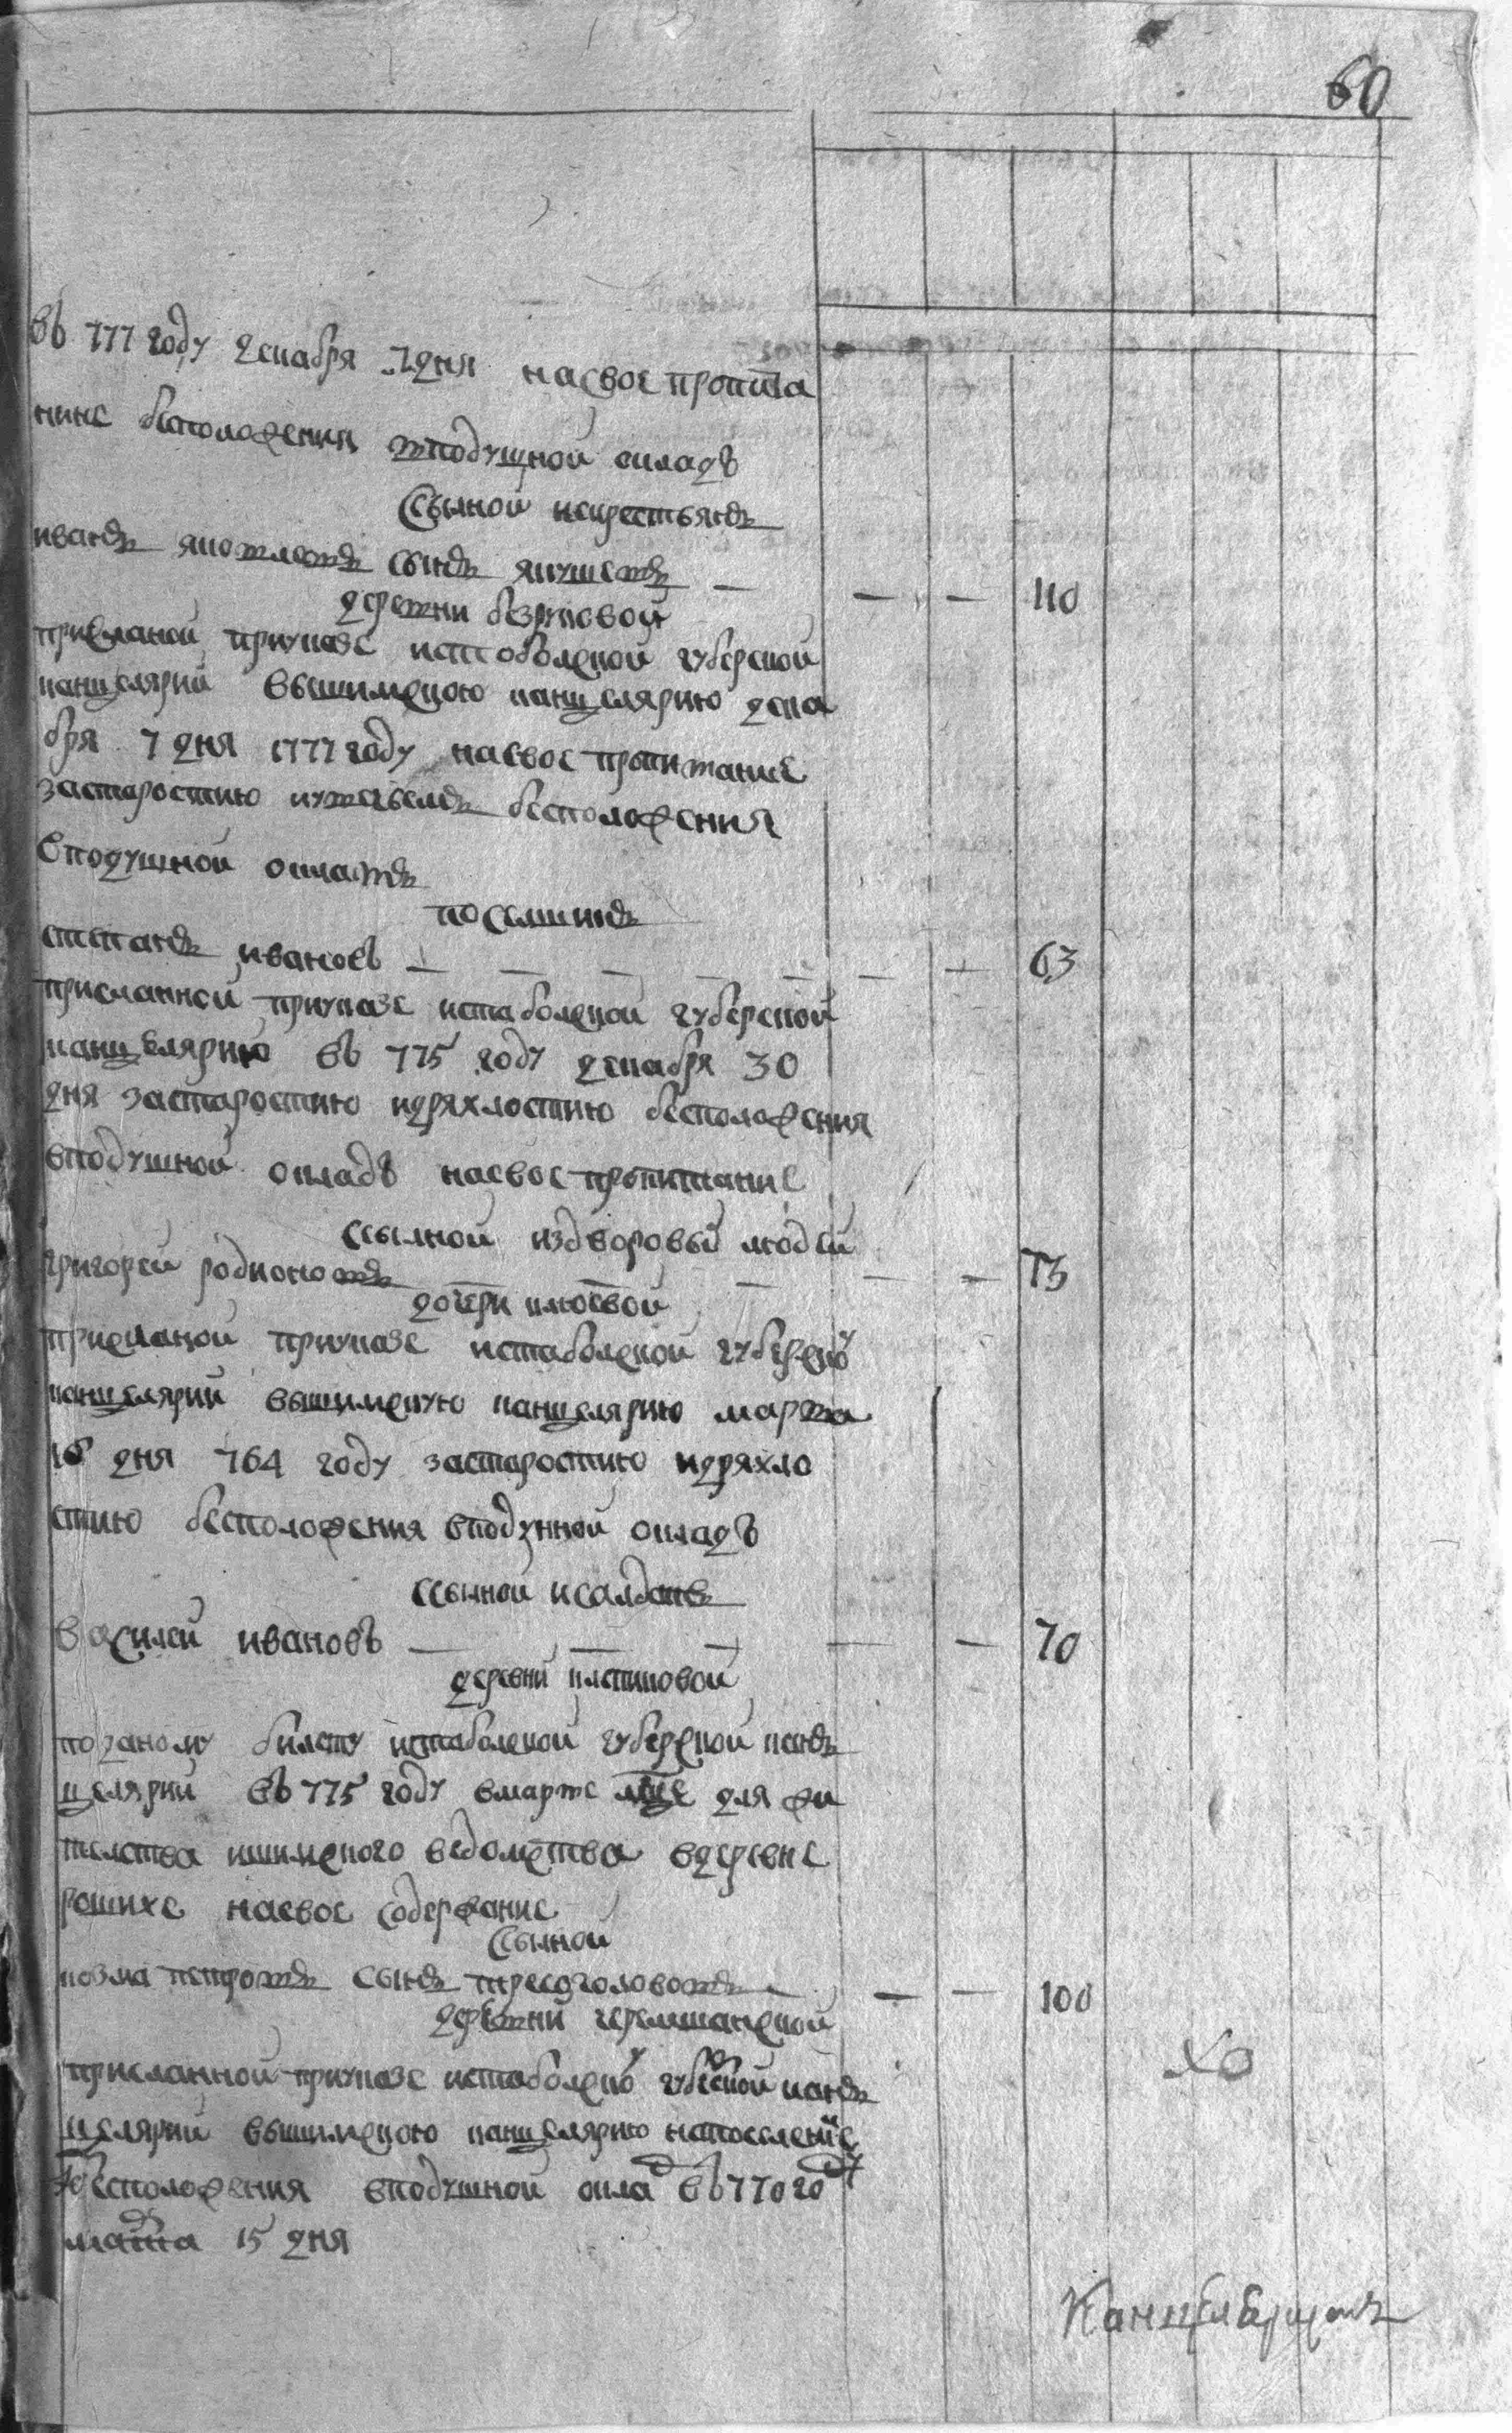 60
въ 777 году декабря 7 дня насвое пропита
ние бесположения вподушной окладъ
ссылной искрестьянъ
иванъ яковлевъ сынъ якушевъ — — — 110
деревни безруковой
присланой приуказе истоболской губерской
канцелярии вышимскою канцелярию дека
бря 7 дня 1777 году насвое пропитание
застаростию иувечьемъ бесположения
вподушной окладъ
поселшикъ
степанъ ивановъ — — — — — — — 63
присланной приуказе истаболской губерской
канцелярию въ 775 году декабря 30
дня застаростию идряхлостию бесположения
вподушной окладъ насвое пропитание
ссылной издворовыи людей
григорей родионовъ — — — 73
присланой приуказе истаболской губерской
канцелярии вышимскую канцелярию марта
16 дня 764 году застаростию идряхло
стию бесположения вподушной окладъ
ссылной исалдатъ
василей ивановъ — — — — — 70
деревни
поданому билету истаболской губерской кан
целярии въ 775 году вмарте мце для жи
телства ишимского ведомства вдеревне
рошихе насвое содержание
ссылной
козма петровъ сынъ треоголововъ — — 100
деревни черемшанской
присланной приуказе истаболской губерской кан
целярии вышимскою канцелярию напоселение
бесположения вподушной оклад въ 770 году
марта 15 дня
Канцеляристъ